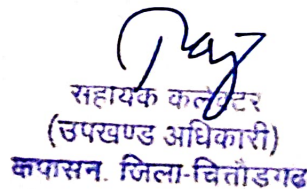 सहायक कलेक्टर
(उपखण्ड अधिकारी)
कपासन. जिला-चितौडगढ